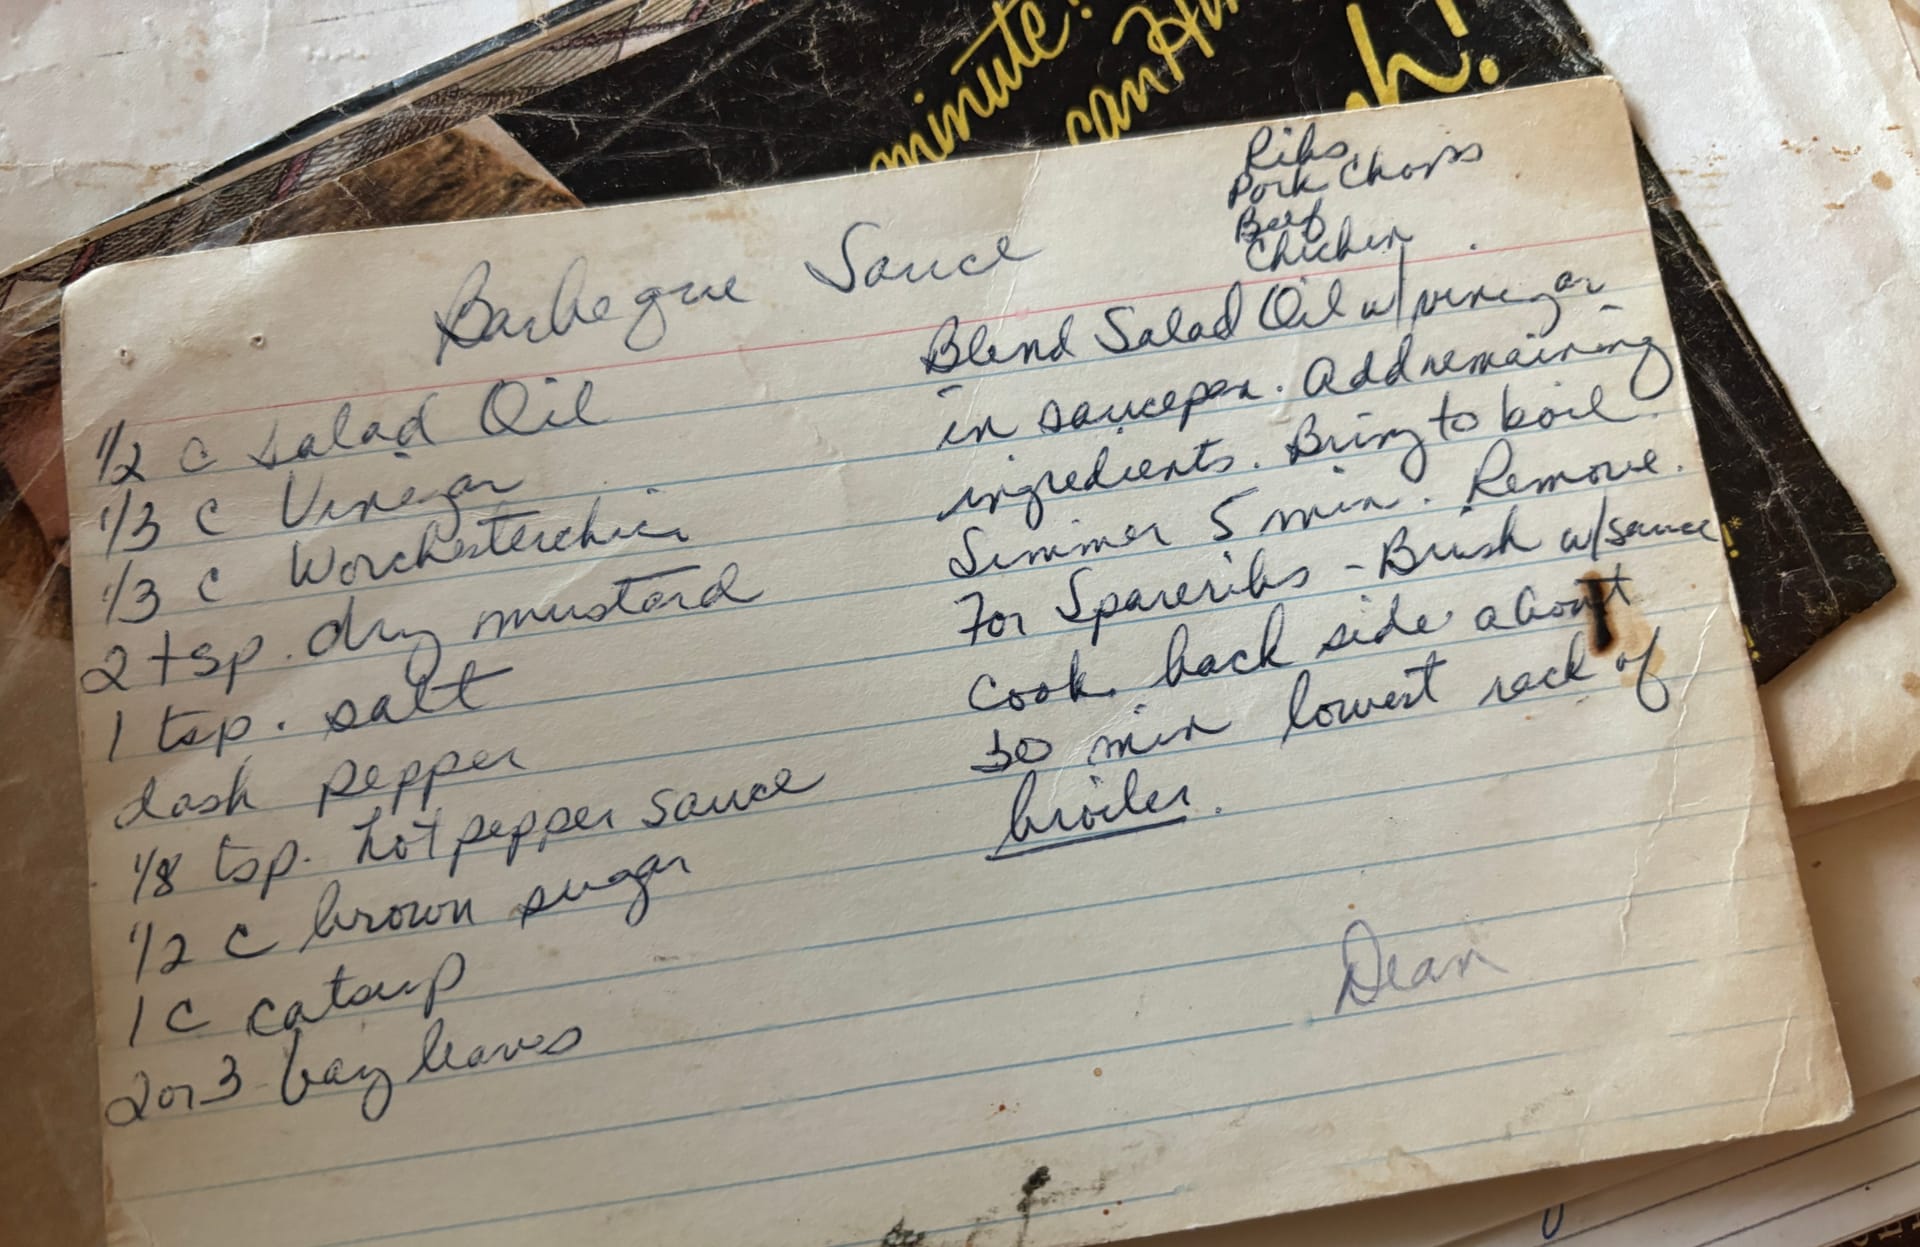 minute!
can
h!
Ribs
Pork Chops
Beef
Chicken
Barbeque Sauce
1/2 c salad Oil
1/3 c Vinegar
1/3 c Worchesterchir
2 tsp. dry mustard
1 tsp. salt
dash pepper
1/8 tsp. hot pepper sauce
1/2 c brown sugar
1 c catsup
2 or 3 bay leaves
Blend Salad Oil w/vinegar
in saucepan. Add remaining
ingredients. Bring to boil.
Simmer 5 min. Remove.
For Spareribs - Brush w/sauce
Cook back side about
30 min lowest rack of
broiler.
Dean